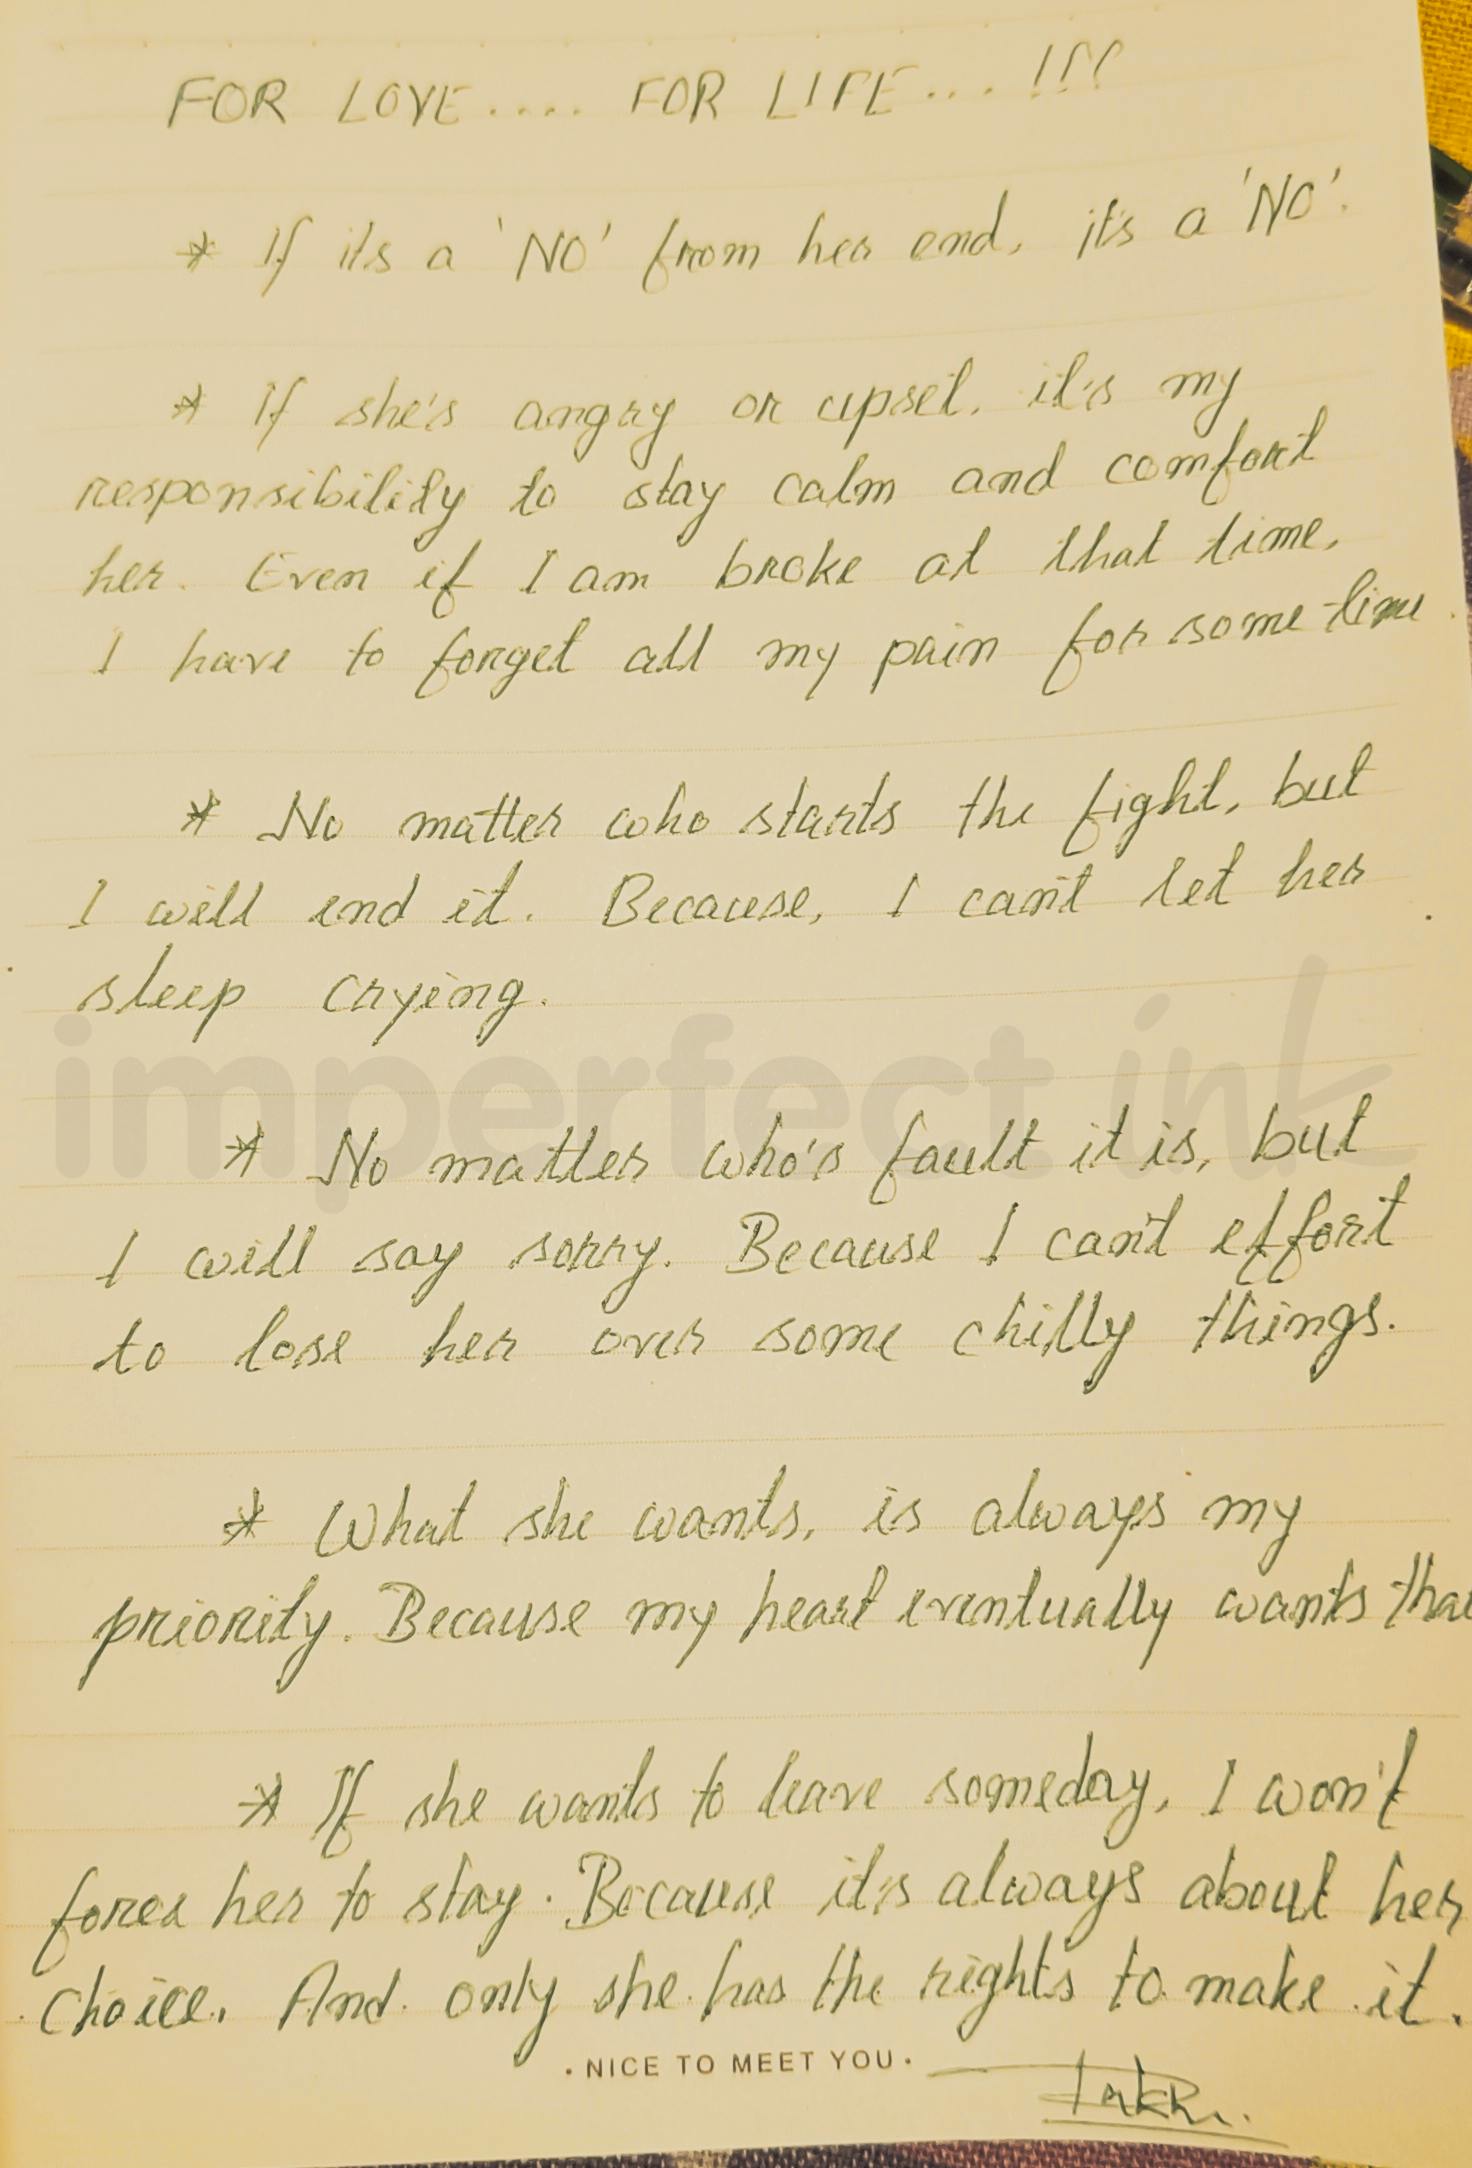 FOR LOVE.... FOR LIFE... !!!
* If its a 'NO' from her end, it's a 'NO'.
* If she's angry or upset, it's my
responsibility to stay calm and comfort
her. Even if I am broke at that time,
I have to forget all my pain for some time.
* No matter who starts the fight, but
I will end it. Because, I can't let her
sleep crying.
imperfect ink
* No matter who's fault it is, but
I will say sorry. Because I can't effort
to lose her over some chilly things.
* What she wants, is always my
priority. Because my heart eventually wants tha
* If she wants to leave someday, I won't
force her to stay. Because it's always about her
choice. And only she has the rights to make it.
• NICE TO MEET YOU •